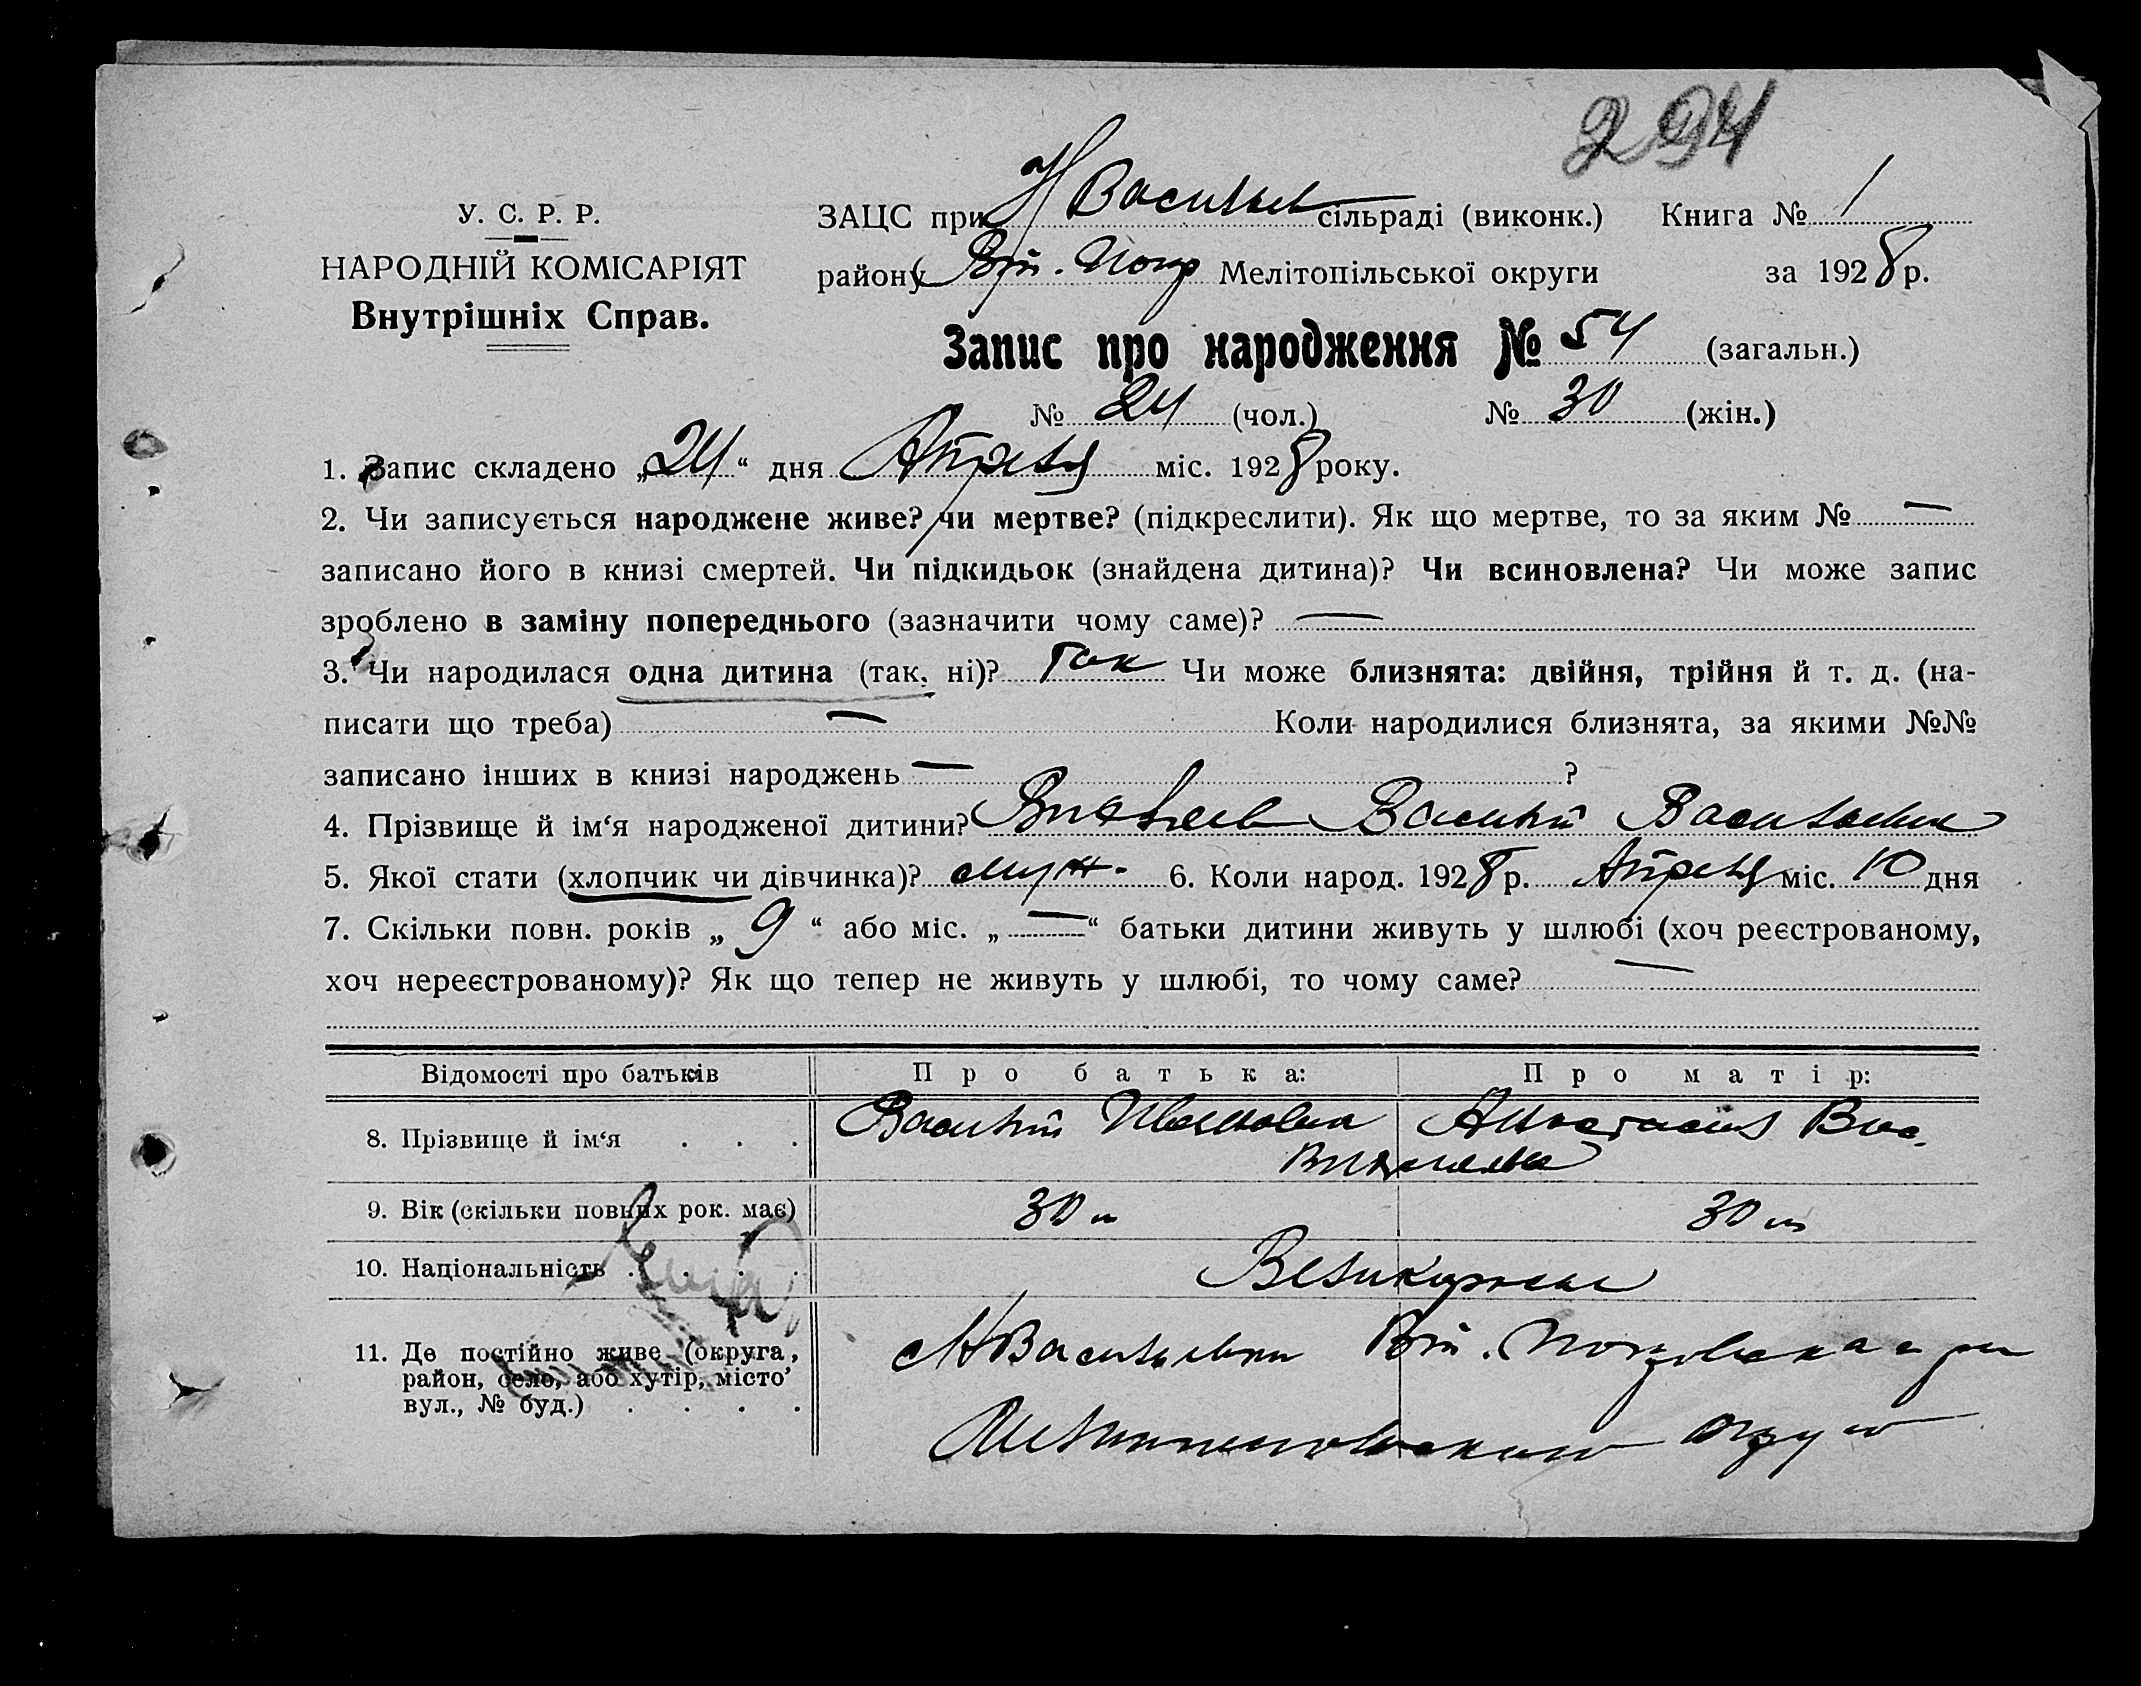 294
У. С. Р. Р.
НАРОДНІЙ КОМІСАРІЯТ
Внутрішніх Справ.
ЗАЦС при Н Васильев сільраді (виконк.) Книга № 1
району Вт. Покр Мелітопільської округи за 1928 р.
Запис про народження № 54 (загальн.)
№ 24 (чол.) № 30 (жін.)
1. Запис складено „24“ дня Апреля міс. 1928 року.
2. Чи записується народжене живе? чи мертве? (підкреслити). Як що мертве, то за яким № —
записано його в книзі смертей. Чи підкидьок (знайдена дитина)? Чи всиновлена? Чи може запис
зроблено в заміну попереднього (зазначити чому саме)? —
3. Чи народилася одна дитина (так, ні)? Так Чи може близнята: двійня, трійня й т. д. (на-
писати що треба) — Коли народилися близнята, за якими №№
записано інших в книзі народжень — ?
4. Прізвище й ім‘я народженої дитини? Василий Васильевич
5. Якої стати (хлопчик чи дівчинка)? муж. 6. Коли народ. 1928 р. Апреля міс. 10 дня
7. Скільки повн. років „9“ або міс. „—“ батьки дитини живуть у шлюбі (хоч реєстрованому,
хоч нереєстрованому)? Як що тепер не живуть у шлюбі, то чому саме? —
Відомості про батьків Про батька: Про матір:
8. Прізвище й ім‘я . . . Василий Иванович Анастасия Вас.
9. Вік (скільки повних рок. має) 30 л 30 л
10. Національність . . . . Великоросы
11. Де постійно живе (округа, Н Васильевки Вт. Покровского р
район, село, або хутір, місто
вул., № буд.) . . . . Мелитопольского окру